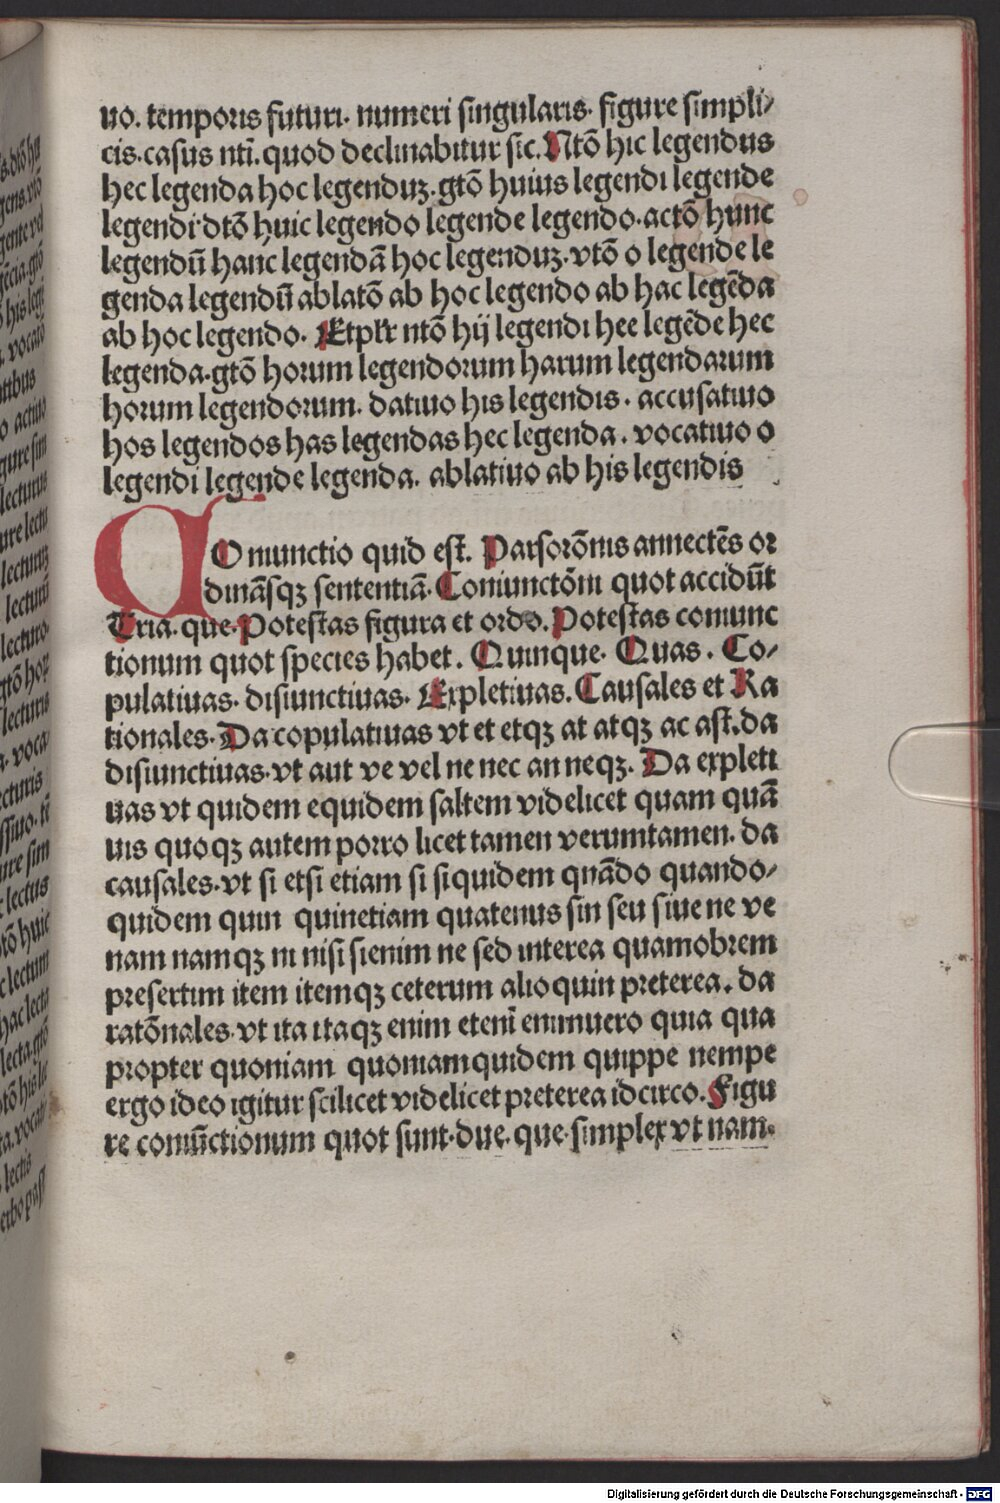 uo. temporis futuri. numeri singularis. figure simpli/
cis. casus nti. quod declinabitur sic. Ntō hic legendus
hec legenda hoc legenduꝫ. gtō huius legendi legende
legendi dtō huic legendo legende legendo. actō hunc
legendū hanc legendā hoc legenduꝫ. vtō o legende le
genda legendū ablatō ab hoc legendo ab hac legēda
ab hoc legendo. Et plr ntō hij legendi hee legēde hec
legenda. gtō horum legendorum harum legendarum
horum legendorum. datiuo his legendis. accusatiuo
hos legendos has legendas hec legenda. vocatiuo o
legendi legende legenda. ablatiuo ab his legendis
COniunctio quid est. Pars orōnis annectēs or
dināsqꝫ sententiā. Coniunctōni quot accidūt
Tria. que. Potestas figura et ordo. Potestas coniunc
tionum quot species habet. Quinque. Quas. Co/
pulatiuas. disiunctiuas. Expletiuas. Causales et Ra
tionales. Da copulatiuas vt et etqꝫ at atqꝫ ac ast. da
disiunctiuas. vt aut ve vel ne nec an neqꝫ. Da expleti
uas vt quidem equidem saltem videlicet quam quā
uis quoqꝫ autem porro licet tamen verumtamen. da
causales. vt si etsi etiam si siquidem quādo quando/
quidem quin quinetiam quatenus sin seu siue ne ve
nam namqꝫ ni nisi sienim ne sed interea quamobrem
presertim item itemqꝫ ceterum alioquin preterea. da
ratōnales. vt ita itaqꝫ enim etenī enimuero quia qua
propter quoniam quoniamquidem quippe nempe
ergo ideo igitur scilicet videlicet preterea idcirco. Figu
re coniūctionum quot sunt. due. que. simplex vt nam.
Digitalisierung gefördert durch die Deutsche Forschungsgemeinschaft - DFG